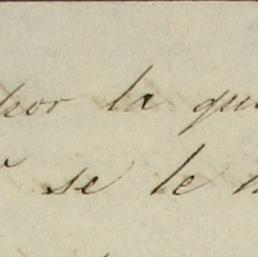 por la qu
se le